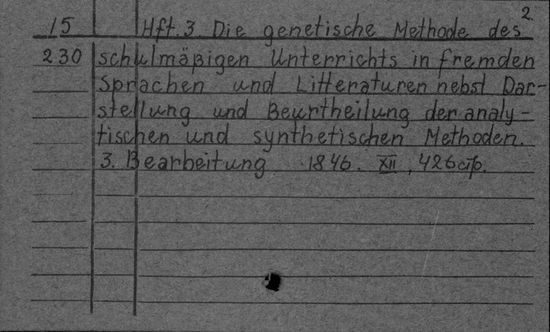 2
15 Hft. 3. Die genetische Methode des
230 schulmäßigen Unterrichts in fremden
Sprachen und Litteraturen nebst Dar-
stellung und Beurtheilung der analy-
tischen und synthetischen Methoden.
3. Bearbeitung 1846. XII, 426 стр.